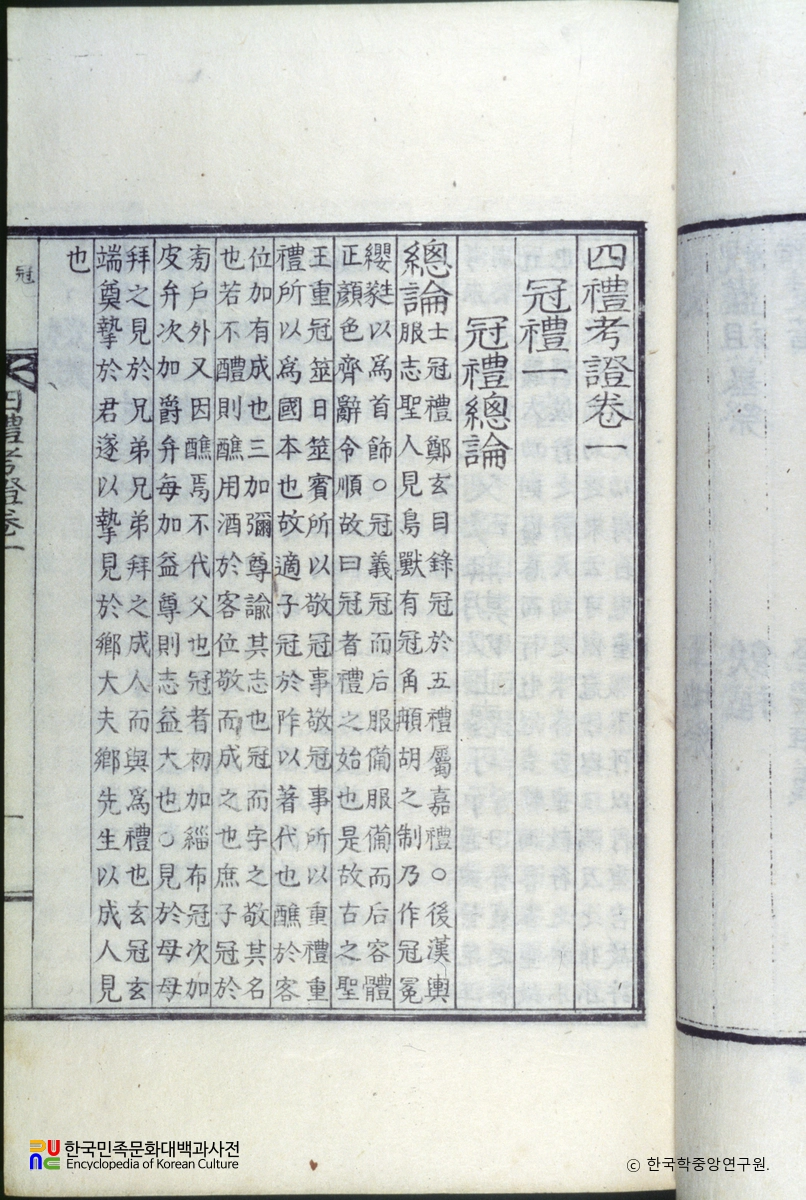 四禮考證卷一
冠禮一
冠禮總論
總論
士冠禮鄭玄目錄冠於五禮屬嘉禮○後漢輿
服志聖人見鳥獸有冠角䫇胡之制乃作冠冕
纓蕤以爲首飾○冠義冠而后服備服備而后容體
正顔色齊辭令順故曰冠者禮之始也是故古之聖
王重冠筮日筮賓所以敬冠事敬冠事所以重禮重
禮所以爲國本也故適子冠於阼以著代也醮於客
位加有成也三加彌尊諭其志也冠而字之敬其名
也若不醴則醮用酒於客位敬而成之也庶子冠於
房戶外又因醮焉不代父也冠者初加緇布冠次加
皮弁次加爵弁每加益尊則志益大也○見於母母
拜之見於兄弟兄弟拜之成人而與爲禮也玄冠玄
端奠摯於君遂以摯見於鄉大夫鄉先生以成人見
也
冠
四禮考證卷一
한국민족문화대백과사전
Encyclopedia of Korean Culture
ⓒ 한국학중앙연구원.